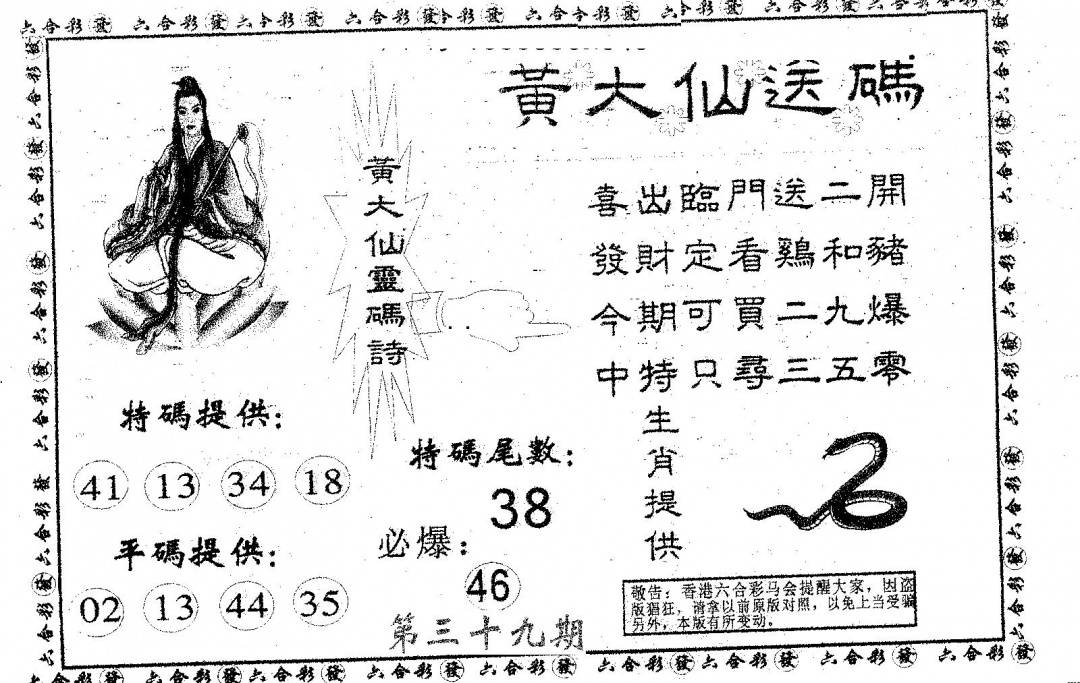 六合彩發 六合彩發 六合彩發 六合彩發
黃大仙送碼
黃大仙靈碼詩
喜出臨門送二開
發財定看鷄和豬
今期可買二九爆
中特只尋三五零
特碼提供:
41 13 34 18
平碼提供:
02 13 44 35
特碼尾數:
38
必爆:
46
第三十九期
生肖提供
敬告：香港六合彩马会提醒大家，因盗
版猖狂，请拿以前原版对照，以免上当受骗
另外，本版有所变动。
六合彩發 六合彩發 六合彩發 六合彩發